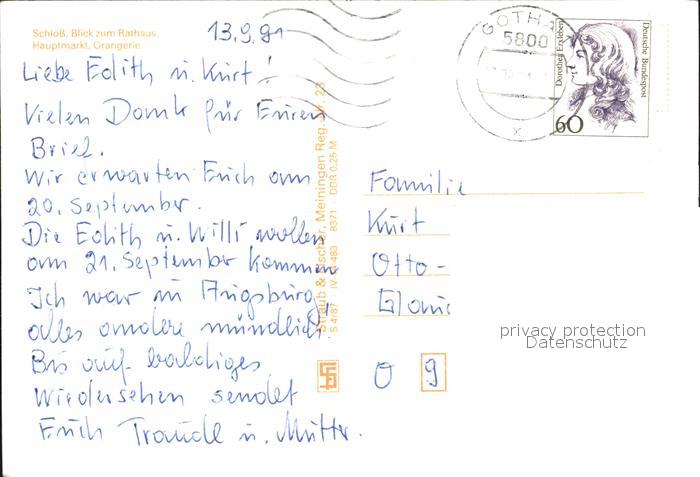 Schloß, Blick zum Rathaus,
Hauptmarkt, Orangerie
13.9.91
Liebe Edith u. Kurt!
Vielen Dank für Euren
Brief.
Wir erwarten Euch am
20. September.
Die Edith u. Willi wollen
am 21. September kommen
Ich war in Augsburg
alles andere mündlich!
Bis auf baldiges
Wiedersehen sendet
Euch Traudl u. Mutter.
Straub & Fischer, Meiningen Reg.-Nr. 23
S 4/87 IV-483 8371 DDR 0,25 M
GOTHA
5800
x
Dorothea Erxleben
Deutsche Bundespost
60
Familie
Kurt
Otto-
O 9
privacy protection
Datenschutz